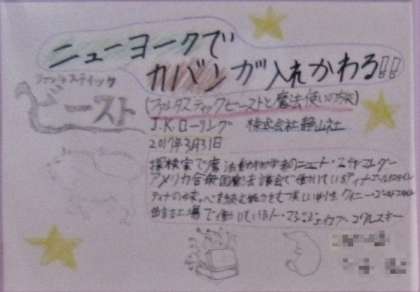 ニューヨークで
カバンが入れかわる!!
ファンタスティック
ビースト
(ファンタスティックビーストと魔法使いの旅)
J.K.ローリング 株式会社静山社
2017年3月31日
探検家で魔法動物学者のニュート・スキャマンダー
アメリカ合衆国魔法議会で働いているティナ・ゴールドスタイン
ティナの妹で心を読む能力をもつ美しい クイニー・ゴールドスタイン
缶詰工場で働いている ジェイコブ・コワルスキー